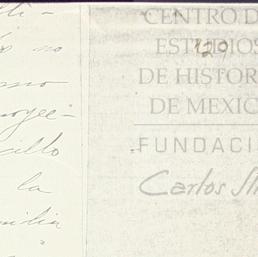 lli-
és no
smo
oyec-
cillo
la
milia
CENTRO D
ESTUDIOS
129
DE HISTOR
DE MEXIC
FUNDACI
Carlos Sli